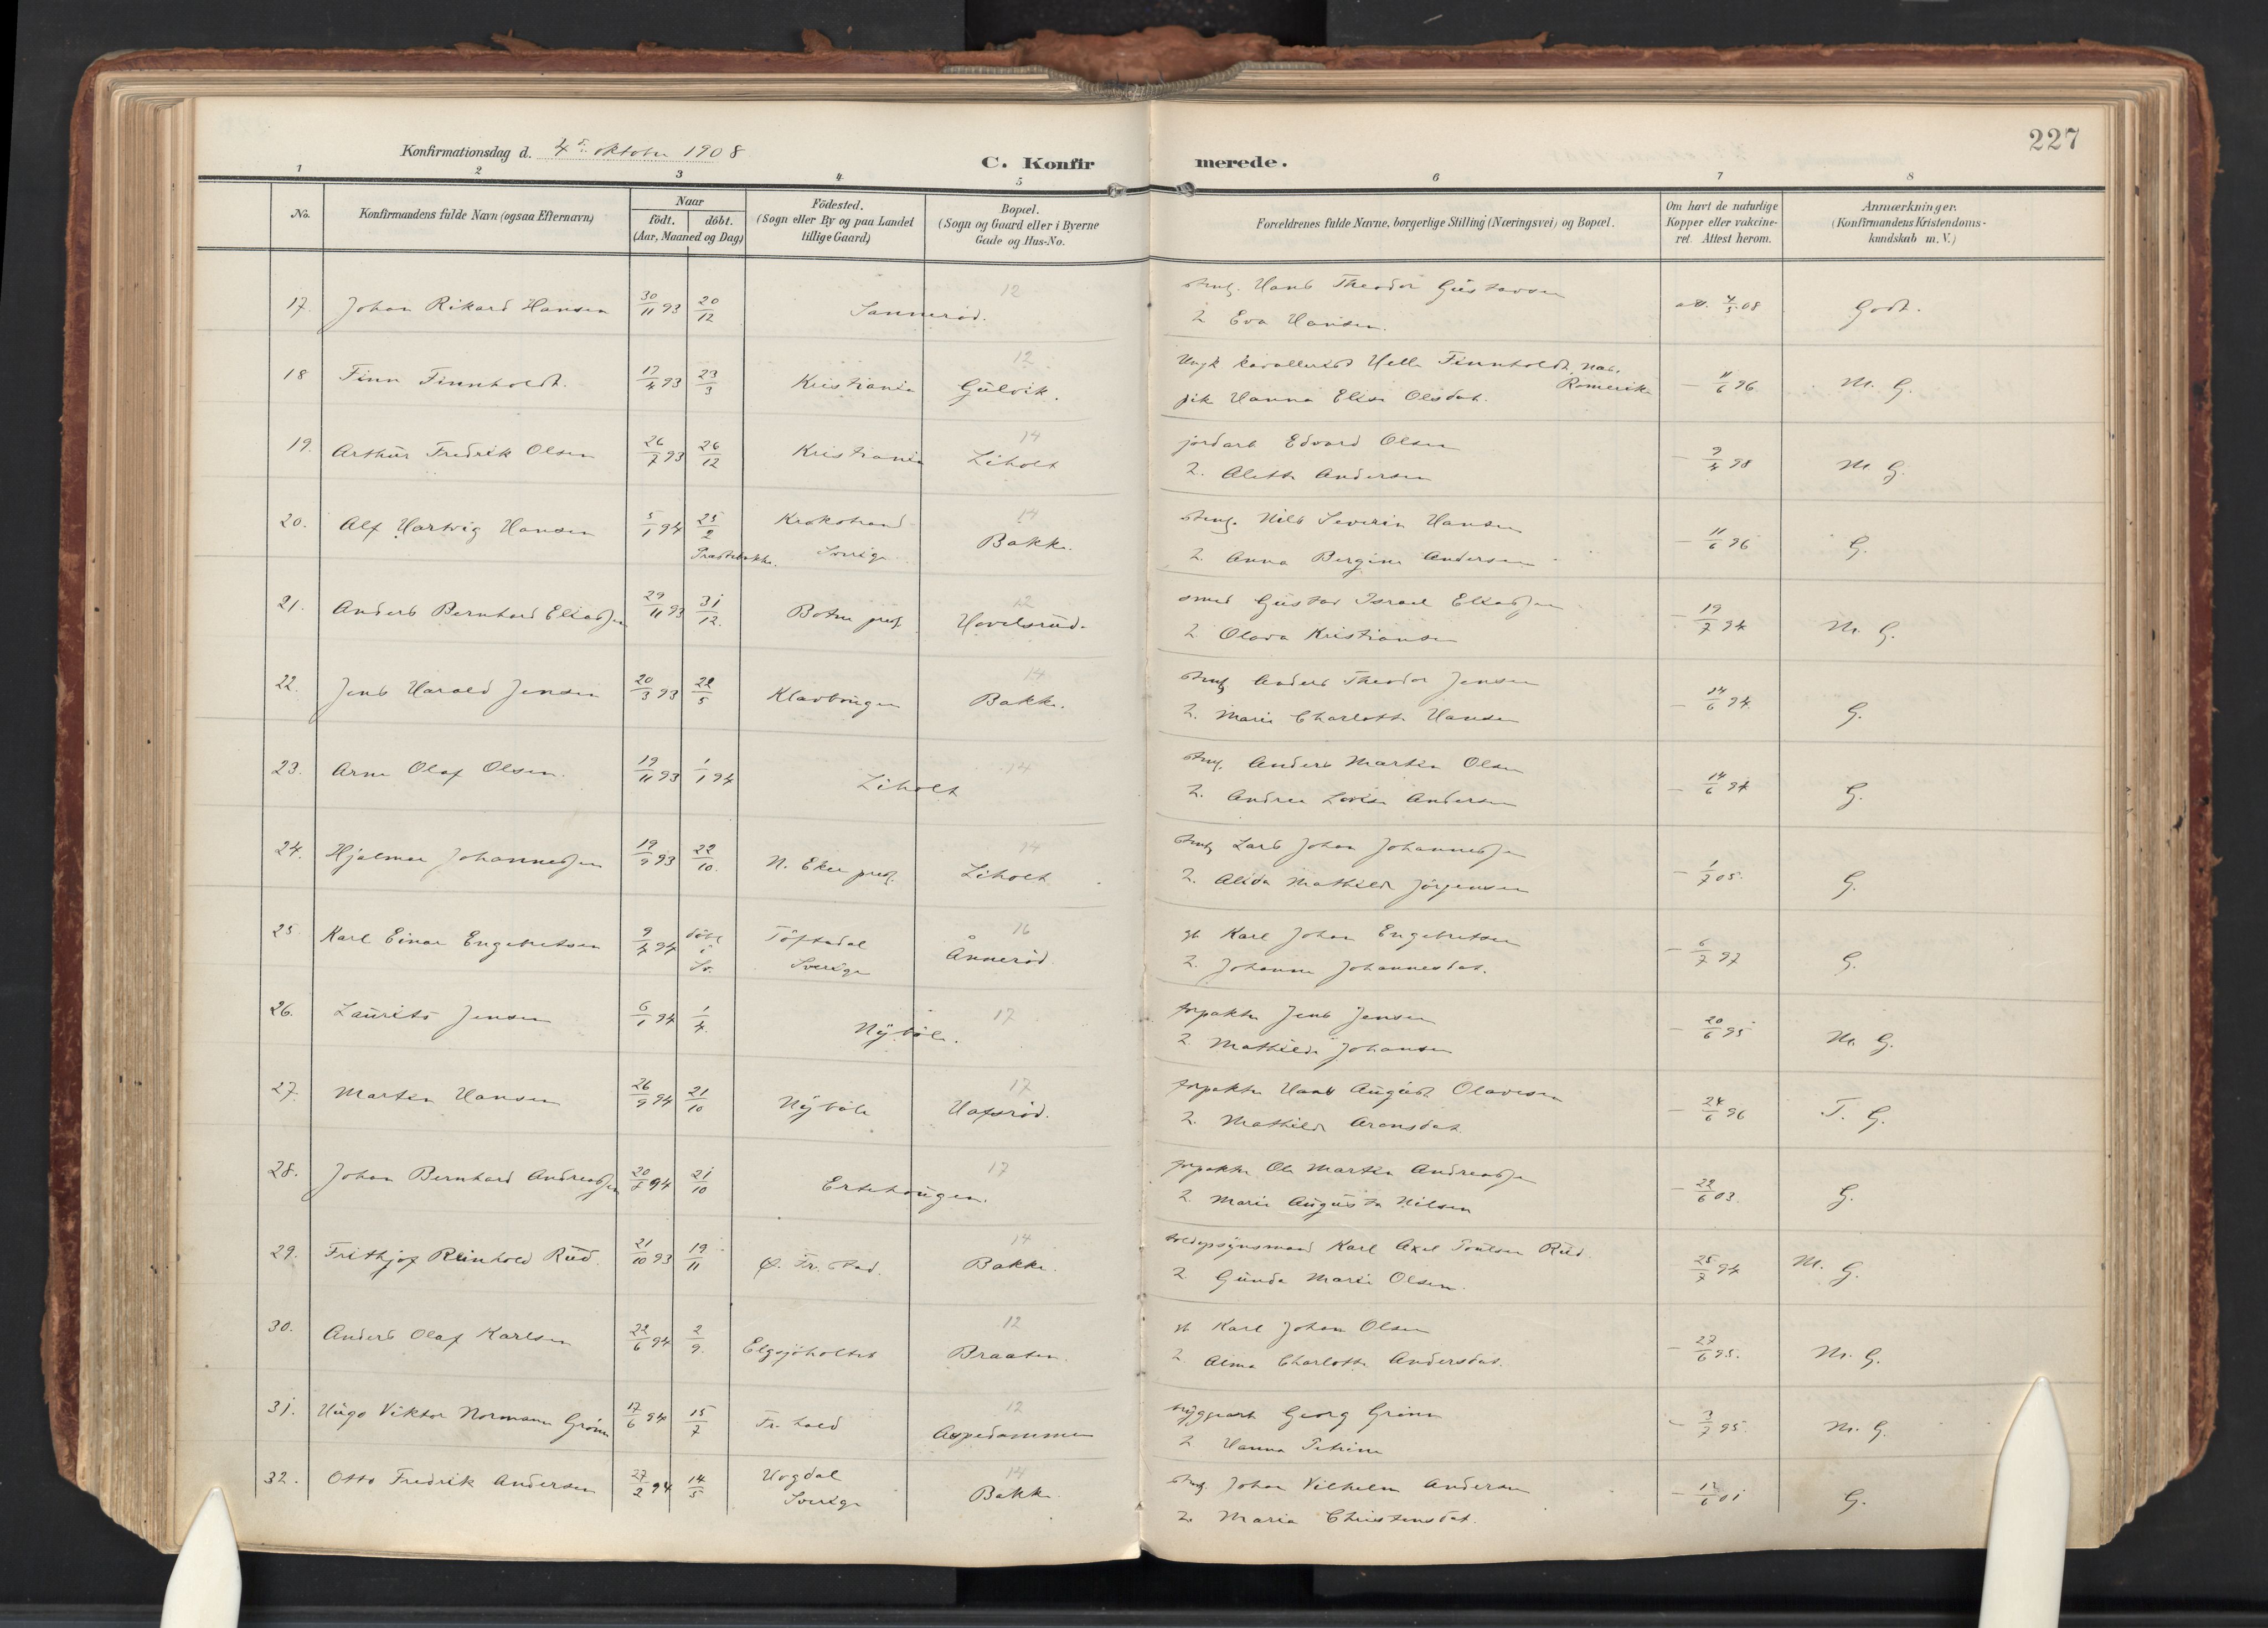 227
Konfirmationsdag d. 4de oktober 1908
C. Konfir merede.
1 2 3 4 5 6 7 8
No. Konfirmandens fulde Navn (ogsaa Efternavn) Naar födt. döbt. (Aar, Maaned og Dag) Födested. (Sogn eller By og paa Landet tillige Gaard) Bopæl. (Sogn og Gaard eller i Byerne Gade og Hus-No. Forældrenes fulde Navne, borgerlige Stilling (Næringsvei) og Bopæl. Om havt de naturlige Kopper eller vakcineret. Attest herom. Anmærkninger. (Konfirmandens Kristendomskundskab m.V.)
17. Johan Rikard Hansen 30/11 93 20/12 Sannerød. 12 stenh. Hans Theodor Gustavsen att. 4/5 08 Godt.
2 Eva Hansen.
18 Finn Finnholdt. 17/4 93 23/3 Kristiania 12 Gulvik. Ungk kavallerist Helle Finnholdt, Romerike — 11/6 96. M. G.
pike Hanna Elise Olsdat.
19. Arthur Fredrik Olsen 26/7 93 26/12 Kristiania 14 Liholt jordarb Edvard Olsen — 9/4 98 M. G.
2. Alette Andersen
20. Alf Hartvig Hansen 5/1 94 25/2 Præstebakke. Krokstrand Sverige 14 Bakke. stenh. Nils Severin Hansen — 11/6 96 G.
2 Anna Bergine Andersen
21. Anders Bernhard Eliassen 29/11 93 31/12. Botne prgj. 12 Hovelsrud. smed Gustav Israel Eliassen — 19/7 94 M. G.
2 Olava Kristiansen
22. Jens Harald Jensen 20/3 93 22/5 Klavhougen 14 Bakke. stenh Anders Theodor Jensen — 14/6 94. G.
2. Marie Charlotte Hansen
23. Arne Olaf Olsen. 19/11 93 1/1 94 Liholt 14 stenh. Anders Martin Olsen — 14/6 94 G.
2. Andrea Lovise Andersen
24. Hjalmar Johannessen 19/9 93 22/10. N. Eker prgj. 14 Liholt stenh Lars Johan Johannessen — 1/7 05. G.
2. Alida Mathilde Jörgensen
25 Karl Einar Engebretsen 9/4 94 döbt i Sv. Töftedal Sverige 16 Ånnerød gb Karl Johan Engebretsen — 6/7 97 G.
2. Johanne Johannesdat.
26. Laurits Jensen 6/1 94 1/4. Nybøle. 17 forpakter Jens Jensen — 20/6 95 M. G.
2 Mathilde Johansen
27. Martin Hansen 26/9 94 21/10 Nybøle 17 Hafsrød. forpakter Hans August Olavesen — 24/6 96 T. G.
2. Mathilde Aronsdat
28. Johan Bernhard Andreassen 20/7 94 21/10 Ertehougen. 17 forpakter Ole Martin Andreassen — 22/6 03. G.
2 Marie Augusta Nilsen
29. Frithjof Reinhold Rud. 21/10 93 19/11 Ø. Fr. stad. 14 Bakke. toldopsynsmand Karl Axel Poulsen Rud. — 25/7 94 M. G.
2 Gunda Marie Olsen.
30. Anders Olaf Karlsen 22/6 94 2/9. Elgsjøholtet 12 Braaten. gb Karl Johan Olsen — 27/6 95. M. G.
2 Alma Charlotte Andersdat.
31. Hugo Viktor Normann Grönn 17/6 94 15/7 Fr. hald 12 Aspedammen byggearb Georg Grönn — 3/7 95. M. G.
2 Hanna Petrine
32. Otto Fredrik Andersen 27/2 94 14/5 Hogdal Sverige 14 Bakke stenh. Johan Vilhelm Andersen — 12/6 01 G.
2. Maria Christensdat.